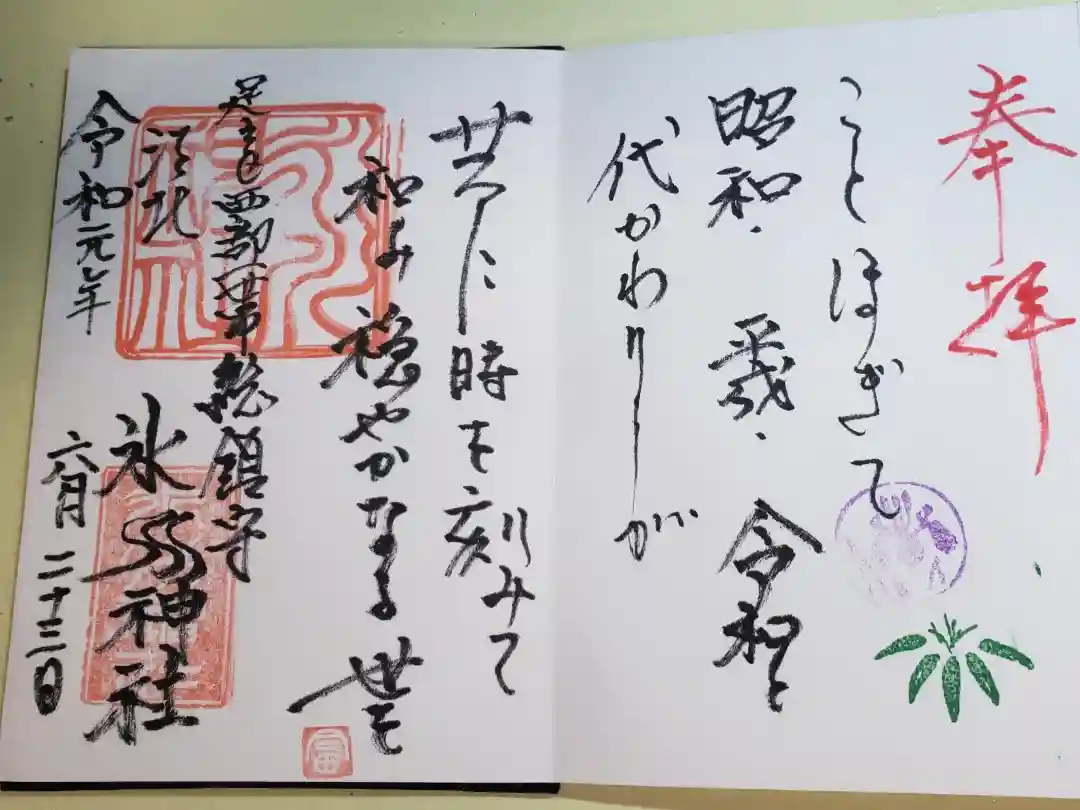 奉拝
ことほぎて
昭和・平成・令和と
代かわりしが
時を刻みて
和み穏やかなる世を
足立西部一帯総鎮守
江北 氷川神社
令和元年 六月二十三日